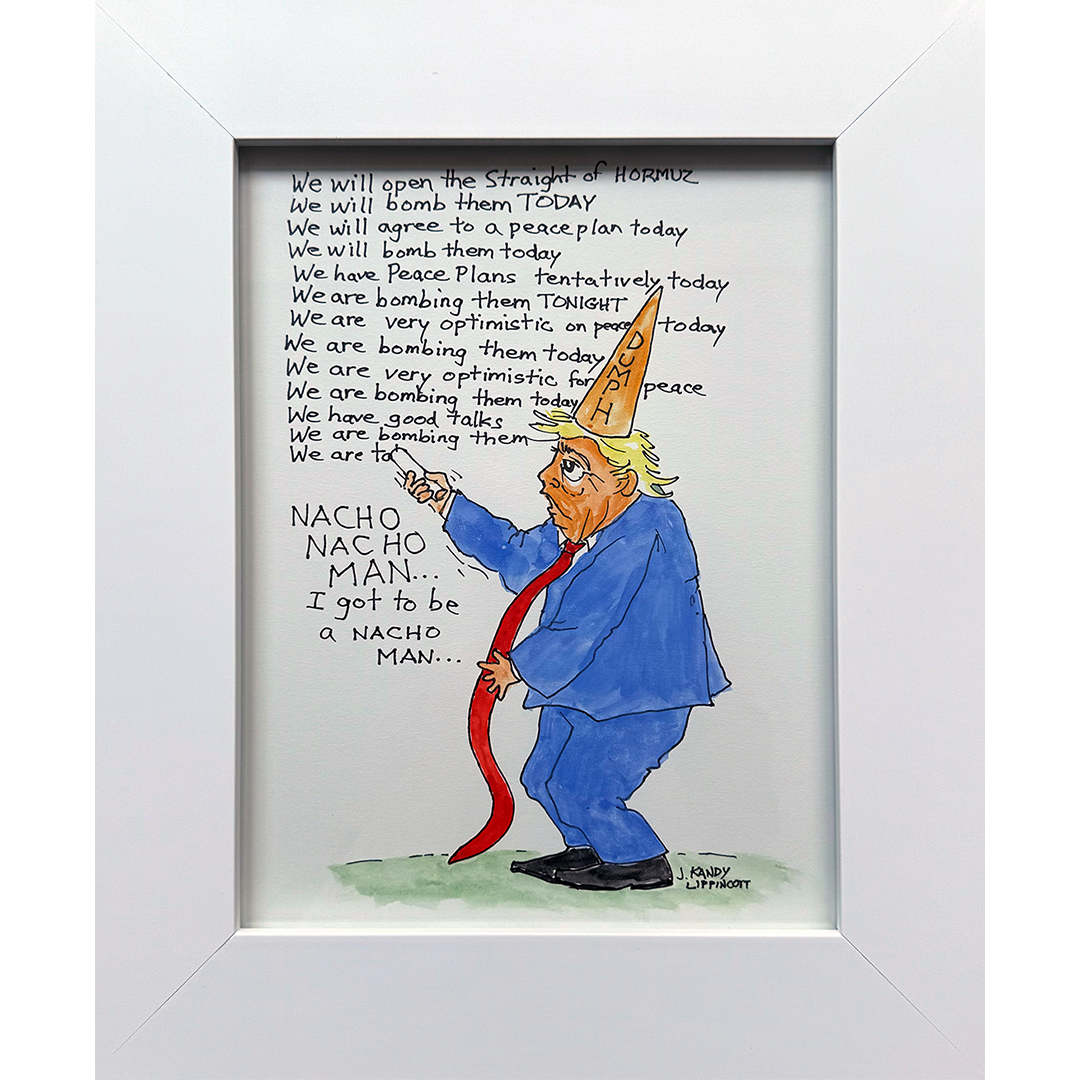 We will open the Straight of HORMUZ
We will bomb them TODAY
We will agree to a peace plan today
We will bomb them today
We have Peace Plans tentatively today
We are bombing them TONIGHT
We are very optimistic on peace today
We are bombing them today
We are very optimistic for peace
We are bombing them today
We have good talks
We are bombing them
We are ta
DUMPH
NACHO
NACHO
MAN...
I got to be
a NACHO
MAN...
J. KANDY
LIPPINCOTT